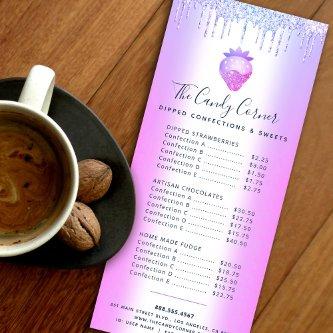 The Candy Corner
DIPPED CONFECTIONS & SWEETS
DIPPED STRAWBERRIES
Confection A $2.25
Confection B $3.00
Confection C $1.50
Confection D $1.75
Confection E $2.75
ARTISAN CHOCOLATES
Confection A $30.50
Confection B $22.75
Confection C $25.50
Confection D $15.75
Confection E $40.50
HOME MADE FUDGE
Confection A $20.50
Confection B $18.75
Confection C $25.50
Confection D $15.75
Confection E $23.75
888.555.4567
555 MAIN STREET BLVD, LOS ANGELES, CA
WWW.THECANDYCORNER
IG: USER NAME